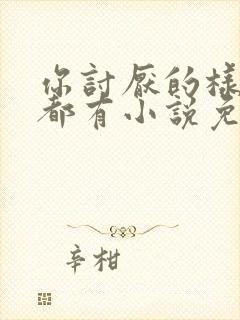 你討厭的樣
都有小説免
辛柑